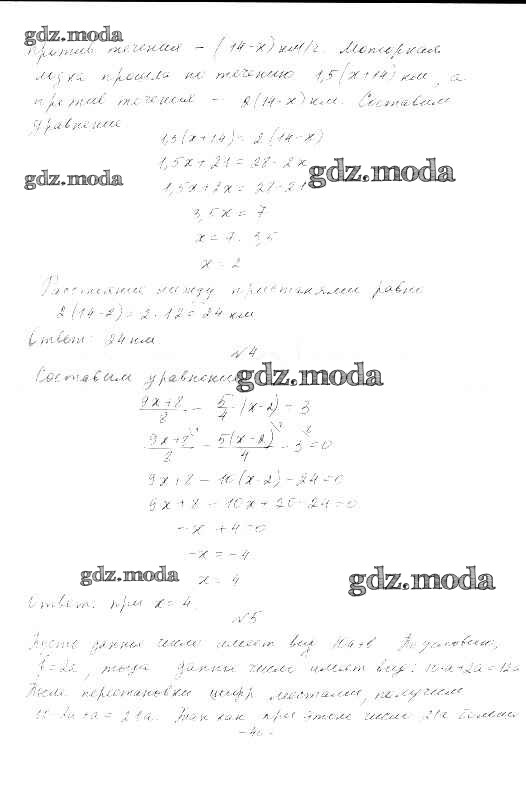 gdz.moda
против течения – (14-x) км/ч. Моторная
лодка прошла по течению 1,5(x+14) км, а
против течения – 2(14-x) км. Составим
уравнение
1,5(x+14) = 2(14-x)
1,5x+21 = 28-2x
gdz.moda gdz.moda
1,5x+2x = 28-21
3,5x = 7
x = 7 : 3,5
x = 2
Расстояние между пристанями равно
2(14-2) = 2·12 = 24 км
Ответ: 24 км
N4
Составим уравнение
gdz.moda
9x+8/8 - 5/4 (x-2) = 3
9x+8/8 - 5(x-2)/4 - 3 = 0
9x+8-10(x-2)-24=0
9x+8-10x+20-24=0
-x+4=0
-x=-4
gdz.moda gdz.moda
x = 4
Ответ: при x=4.
N5
Пусть данное число имеет вид 10a+b По условию,
b=2a, тогда данное число имеет вид: 10a+2a=12a
После перестановки цифр местами, получим
10·2a+a = 21a. Так как при этом число 21a больше
-40-